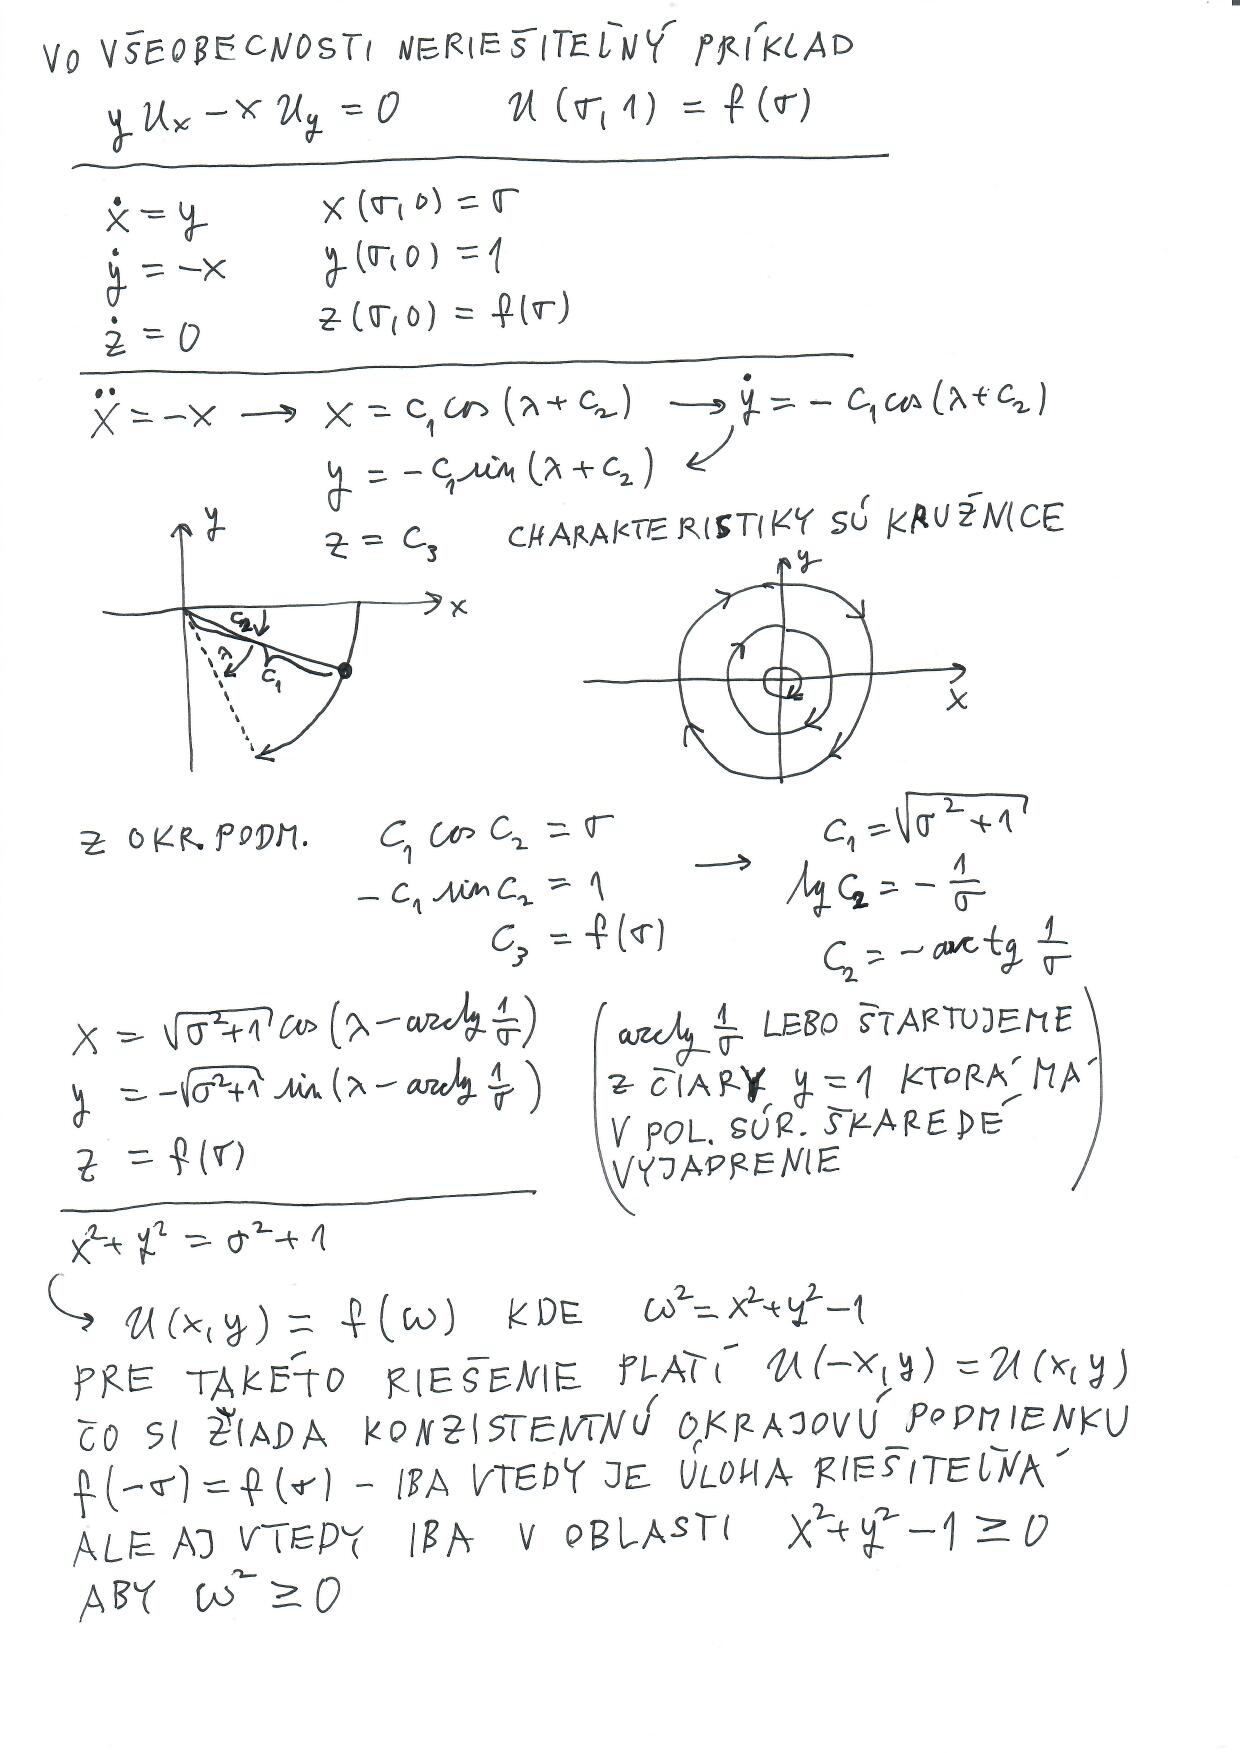 VO VŠEOBECNOSTI NERIEŠITEĽNÝ PRÍKLAD
y u_x - x u_y = 0    u(σ,1) = f(σ)
ẋ = y    x(σ,0) = σ
ẏ = -x    y(σ,0) = 1
ż = 0    z(σ,0) = f(σ)
ẍ = -x → x = c₁ cos(λ+c₂) → ẏ = - c₁ cos(λ+c₂)
y = - c₁ sin(λ+c₂)
z = c₃    CHARAKTERISTIKY SÚ KRUŽNICE
y
x
c₂
λ
c₁
y
x
Z OKR. PODM.    c₁ cos c₂ = σ → c₁ = √(σ²+1)
- c₁ sin c₂ = 1    tg c₂ = - 1/σ
c₃ = f(σ)    c₂ = - arctg 1/σ
x = √(σ²+1) cos(λ - arctg 1/σ)
y = -√(σ²+1) sin(λ - arctg 1/σ)
z = f(σ)
(arctg 1/σ LEBO ŠTARTUJEME
Z ČIARY y = 1 KTORÁ MÁ
V POL. SÚR. ŠKAREDÉ
VYJADRENIE)
x² + y² = σ² + 1
→ u(x,y) = f(ω) KDE ω² = x² + y² - 1
PRE TAKÉTO RIEŠENIE PLATÍ u(-x,y) = u(x,y)
ČO SI ŽIADA KONZISTENTNÚ OKRAJOVÚ PODMIENKU
f(-σ) = f(σ) - IBA VTEDY JE ÚLOHA RIEŠITEĽNÁ
ALE AJ VTEDY IBA V OBLASTI x² + y² - 1 ≥ 0
ABY ω² ≥ 0